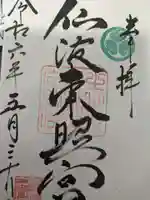 奉拝
仙波東照宮
令和六年五月三十